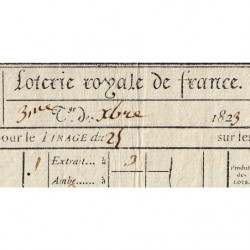 Loterie royale de france.
3me Tge de Xbre 1823
pour le TIRAGE du 25 sur les
1 Extrait...... à 3
Ambe...... à